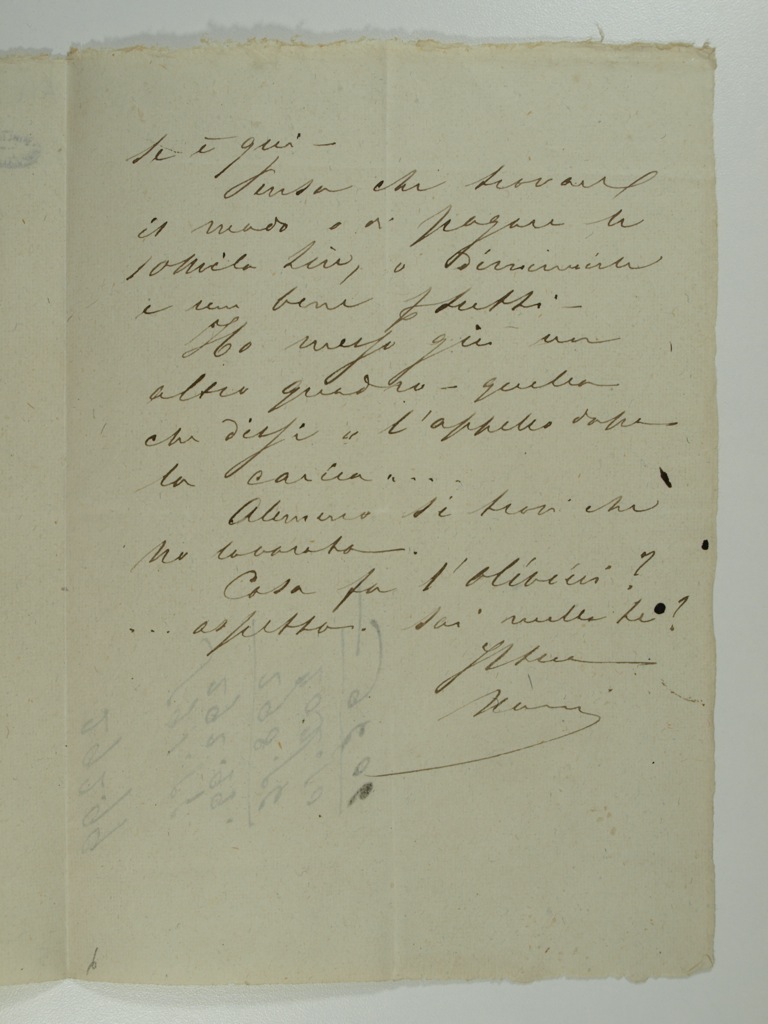 se è qui –
Pensa che trovare
il modo o di pagare le
10mila lire, o diminuirle
è un bene p tutti –
Ho messo giù un
altro quadro – quello
che dissi " l'appello dopo
la carica " ...
Almeno si trovi che
ho lavorato.
Cosa fa l'Olivieri?
... aspetto. Sai nulla te?
Il tuo
Nani